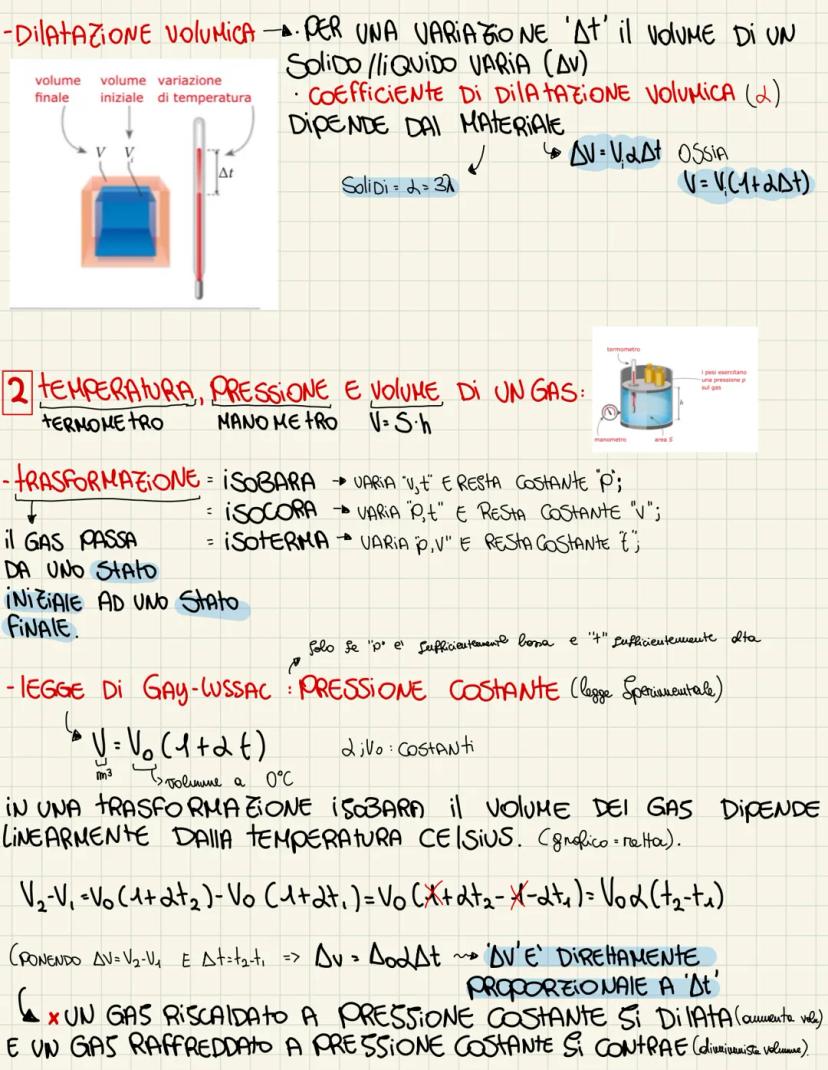 -DILATAZIONE VOLUMICA → · PER UNA VARIAZIONE 'Δt' il VOLUME DI UN
SOLIDO/LIQUIDO VARIA (ΔV)
· COEFFICIENTE DI DILATAZIONE VOLUMICA (α)
DIPENDE DAL MATERIALE
ΔV = Vᵢ α Δt OSSIA
V = Vᵢ(1+αΔt)
SOLIDI = α = 3λ
volume finale
volume iniziale
variazione di temperatura
V Vᵢ
Δt
2 TEMPERATURA, PRESSIONE E VOLUME DI UN GAS:
TERMOMETRO MANOMETRO V=S·h
termometro
i pesi esercitano
una pressione p
sul gas
h
manometro area S
-TRASFORMAZIONE = ISOBARA → VARIA "V,t" E RESTA COSTANTE "p";
= ISOCORA → VARIA "P,t" E RESTA COSTANTE "V";
= ISOTERMA → VARIA "p,V" E RESTA COSTANTE "t";
il GAS PASSA
DA UNO STATO
INIZIALE AD UNO STATO
FINALE.
Solo se "p" e' sufficientemente bassa e "t" sufficientemente alta
-LEGGE DI GAY-LUSSAC : PRESSIONE COSTANTE (legge sperimentale)
V = V₀ (1+αt) α; V₀ : COSTANTI
m³ volume a 0°C
IN UNA TRASFORMAZIONE ISOBARA il VOLUME DEL GAS DIPENDE
LINEARMENTE DALLA TEMPERATURA CELSIUS. (grafico = retta).
V₂-V₁ = V₀(1+αt₂)-V₀(1+αt₁) = V₀(1+αt₂-1-αt₁) = V₀α(t₂-t₁)
(PONENDO ΔV=V₂-V₁ E Δt=t₂-t₁ => ΔV = Δ₀αΔt ⇝ 'ΔV' E' DIRETTAMENTE
PROPORZIONALE A 'Δt'
× UN GAS RISCALDATO A PRESSIONE COSTANTE SI DILATA (aumenta vol.)
E UN GAS RAFFREDDATO A PRESSIONE COSTANTE SI CONTRAE (diminuisce volume).